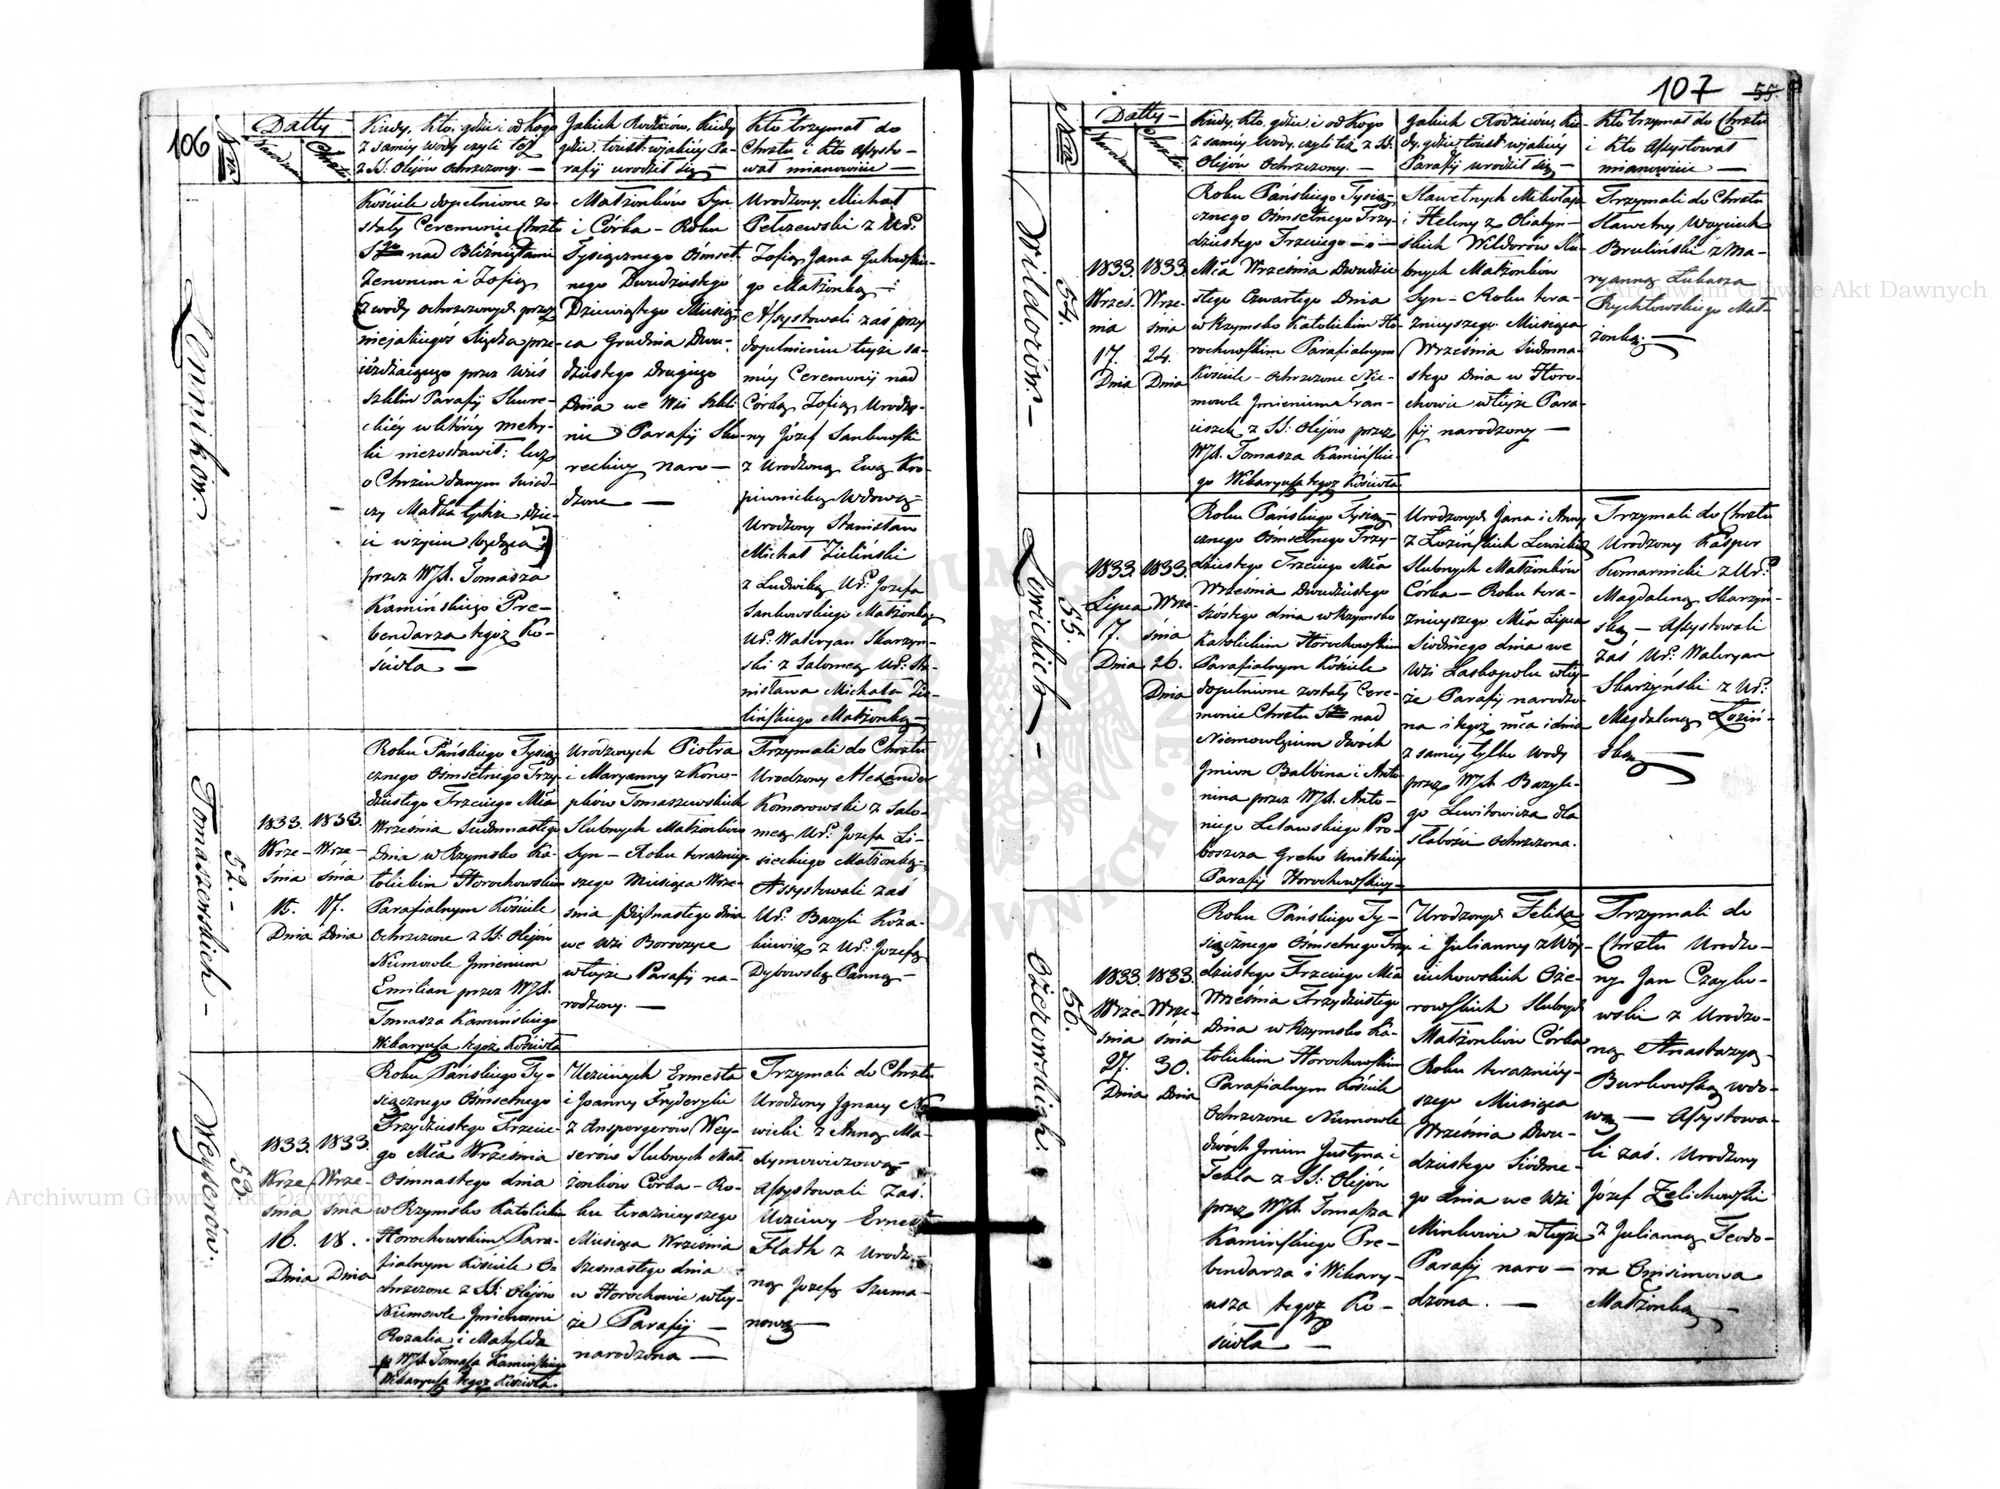 106
Nra
Datty
Narodzen.
Chrztu.
Kiedy, Kto, gdzie i od kogo
z samey wody czyli też
z SS. Olejów Ochrzczony. —
Jakich Rodziców, Kiedy
gdzie, toiest: wjakiey Pa-
rafij urodził się —
Kto trzymał do
Chrztu i Kto Assysto-
wał mianowicie —
Lenników.
Kościele dopełnione zo-
stały Ceremonie Chrztu
Sgo nad Bliźniętami
Zenonem i Zofią
(z wody ochrzczonych przez
niejakiegoś Xiędza prze-
ieżdżaiącego przez Wieś
przez WJX. Tomasza
Kamińskiego Pre-
bendarza tegoż Ko-
ścioła —
Małżonków Syn
i Córka – Roku
Tysiącznego Ośmset-
nego Dwudziestego
Dziewiątego Miesią-
ca Grudnia Dwu-
dziestego Drugiego
Dnia we Wsi
nie Parafij Sku-
reckiey naro —
dzone —
Urodzony Michał
Pełczewski z Ur:
Zofią Jana
go Małżonką —
Assystowali zaś przy
dopełnieniu teyże sa-
mey Ceremonij nad
Córką Zofią Urodzo-
ny Józef Sankowski
z Urodzoną Ewą Kro-
piwnicką Wdową
Urodzony Stanisław
Michał Zieliński
z Ludwiką Ur: Józefa
Sankowskiego Małżonką
Ur: Waleryan Skarzyn-
ski z Salomeą Ur: Sta-
nisława Michała Zie-
lińskiego Małżonką —
52. —
Tomaszewskich —
1833. 1833.
Wrze- Wrze-
śnia śnia
15. 17.
Dnia Dnia
Roku Pańskiego Tysią-
cznego Ośmsetnego Trzy-
dziestego Trzeciego Mca
Września Siedmnastego
Dnia w Rzymsko Ka-
tolickim Horochowskim
Parafialnym Kościele
Ochrzczone z SS: Olejów
Niemowle Jmieniem
Emilian przez WJX.
Tomasza Kamińskiego
Wikaryusza tegoż Kościoła
Urodzonych Piotra
i Maryanny z Kono-
pków Tomaszewskich
Slubnych Małżonków
Syn – Roku terażniey-
szego Miesiąca Wrze-
śnia Piętnastego dnia
we Wsi Boroczyce
wteyże Parafij na-
rodzony. —
Trzymali do Chrztu
Urodzony Alexander
Komorowski z Salo-
meą Ur: Jozefa Li-
sieckiego Małżonką —
Assystowali zaś
Ur: Bazyli Koza-
kiewicz z Ur: Jozefą
Dybowską Panną —
53.
Weyserów.
1833. 1833.
Wrze- Wrze-
śnia śnia
16. 18.
Dnia Dnia
Roku Pańskiego Ty-
siącznego Ośmsetnego
Trzydziestego Trzecie-
go Mca Września
Ośmnastego dnia
w Rzymsko Katolickim
Horochowskim Para-
fialnym Kościele O-
chrzczone z SS: Olejów
Niemowle Jmionami
Rozalia i Matylda
pr WJX. Tomasza Kamińskiego
Wikaryusza tegoż Kościoła.
Uczciwych Ernesta
i Joanny Fryderyki
z Anspergerów Wey-
serów Slubnych Mał-
żonków Córka – Ro-
ku terażnieyszego
Miesiąca Września
Szesnastego dnia
w Horochowie wtey-
że Parafij —
narodzona —
Trzymali do Chrztu
Urodzony Jgnacy No-
wicki z Anną Ma-
xymowiczową —
Assystowali zaś:
Uczciwy Ernest
Flath z Urodzo-
ną Jozefą Szuma-
nową —
107
55
Nra
Datty —
Narodzen.
Chrztu.
Kiedy, Kto, gdzie i od Kogo
z samey Wody, czyli też z SS.
Olejów Ochrzczony. —
Jakich Rodziców, Kie-
dy, gdzie, toiest wjakiey
Parafij urodził się —
Kto trzymał do Chrztu
i Kto Assystował
mianowicie —
54.
Wildorów. —
1833. 1833.
Wrześ- Wrze-
nia śnia
17. 24.
Dnia Dnia
Roku Pańskiego Tysią-
cznego Ośmsetnego Trzy-
dziestego Trzeciego —
Mca Września Dwudzie-
stego Czwartego Dnia
w Rzymsko Katolickim Ho-
rochowskim Parafialnym
Kościele – Ochrzczone Nie-
mowle Jmieniem Fran-
ciszek z SS: Olejów przez
WJX. Tomasza Kamińskie-
go Wikaryusza tegoż Kościoła
Sławetnych Mikołaja
i Heleny z
skich Wildorów Slu-
bnych Małżonków
Syn – Roku tera-
żnieyszego Miesiąca
Września Siedmna-
stego Dnia w Horo-
chowie wteyże Para-
fij narodzony —
Trzymali do Chrztu
Sławetny Woyciech
Bruliński z Ma-
ryanną Łukasza
Rychtowskiego Mał-
żonką. —
55.
Lewickich —
1833. 1833.
Lipca Wrze-
7. śnia
Dnia 26.
Dnia
Roku Pańskiego Tysią-
cznego Ośmsetnego Trzy-
dziestego Trzeciego Mca
Września Dwudziestego
Szóstego dnia w Rzymsko
Katolickim Horochowskim
Parafialnym Kościele
dopełnione zostały Cere-
monie Chrztu Sgo nad
Niemowlęciem dwóch
Jmion Balbina i Anto-
nina przez WJX. Anto-
niego Letawskiego Pro-
boszcza Greko Unitskiey
Parafij Horochowskiey —
Urodzonych Jana i Anny
z Łozińskich Lewickich
Slubnych Małżonków
Córka – Roku tera-
żnieyszego Mca Lipca
Siodmego dnia we
Wsi Laskopolu wtey-
że Parafij narodzo-
na i tegoż mca i dnia
z samey tylko Wody
przez WJX Bazyle-
go Lewitowicza dla
słabości Ochrzczona.
Trzymali do Chrztu
Urodzony Kasper
Komarnicki z Ur:
Magdaleną Skarzyń-
ską — Assystowali
zaś Ur: Waleryan
Skarżyński z Ur:
Magdaleną Łoziń-
ską —
56.
Ożerowskich.
1833. 1833.
Wrze- Wrze-
śnia śnia
27. 30.
Dnia Dnia
Roku Pańskiego Ty-
siącznego Ośmsetnego Trzy-
dziestego Trzeciego Mca
Września Trzydziestego
Dnia w Rzymsko Ka-
tolickim Horochowskim
Parafialnym Kościele
Ochrzczone Niemowle
dwóch Jmion Justyna i
Tekla z SS: Olejów
przez WJX Tomasza
Kamińskiego Pre-
bendarza i Wikary-
usza tegoż Ko-
ścioła —
Urodzonych Felixa
i Julianny z Woy-
ciechowskich Oże-
rowskich Slubnych
Małżonków Córka
Roku terażniey-
szego Miesiąca
Września Dwu-
dziestego Siódme-
go dnia we Wsi
Minkowie wteyże
Parafij naro —
dzona. —
Trzymali do
Chrztu Urodzo-
ny Jan Czayko-
wski z Urodzo-
ną Anastazyą
Burkowską wdo-
wą — Assystowa-
li zaś. Urodzony
Józef Zelichowski
z Julianną Teodo-
ra Onisimowa
Małżonką —
Archiwum Główne Akt Dawnych
Archiwum Główne Akt Dawnych